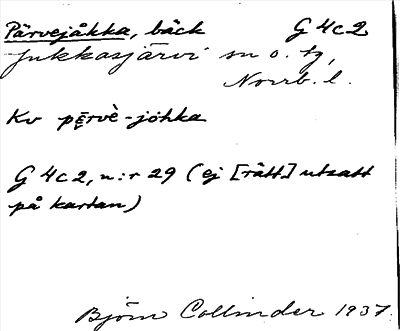 Pärvejåkka, bäck G 4c2
Jukkasjärvi sn o. tg,
Norrb. l.
Kv pęrvè-jóhka
G 4c2, n:r 29 (ej [rätt] utsatt
på kartan)
Björn Collinder 1937.